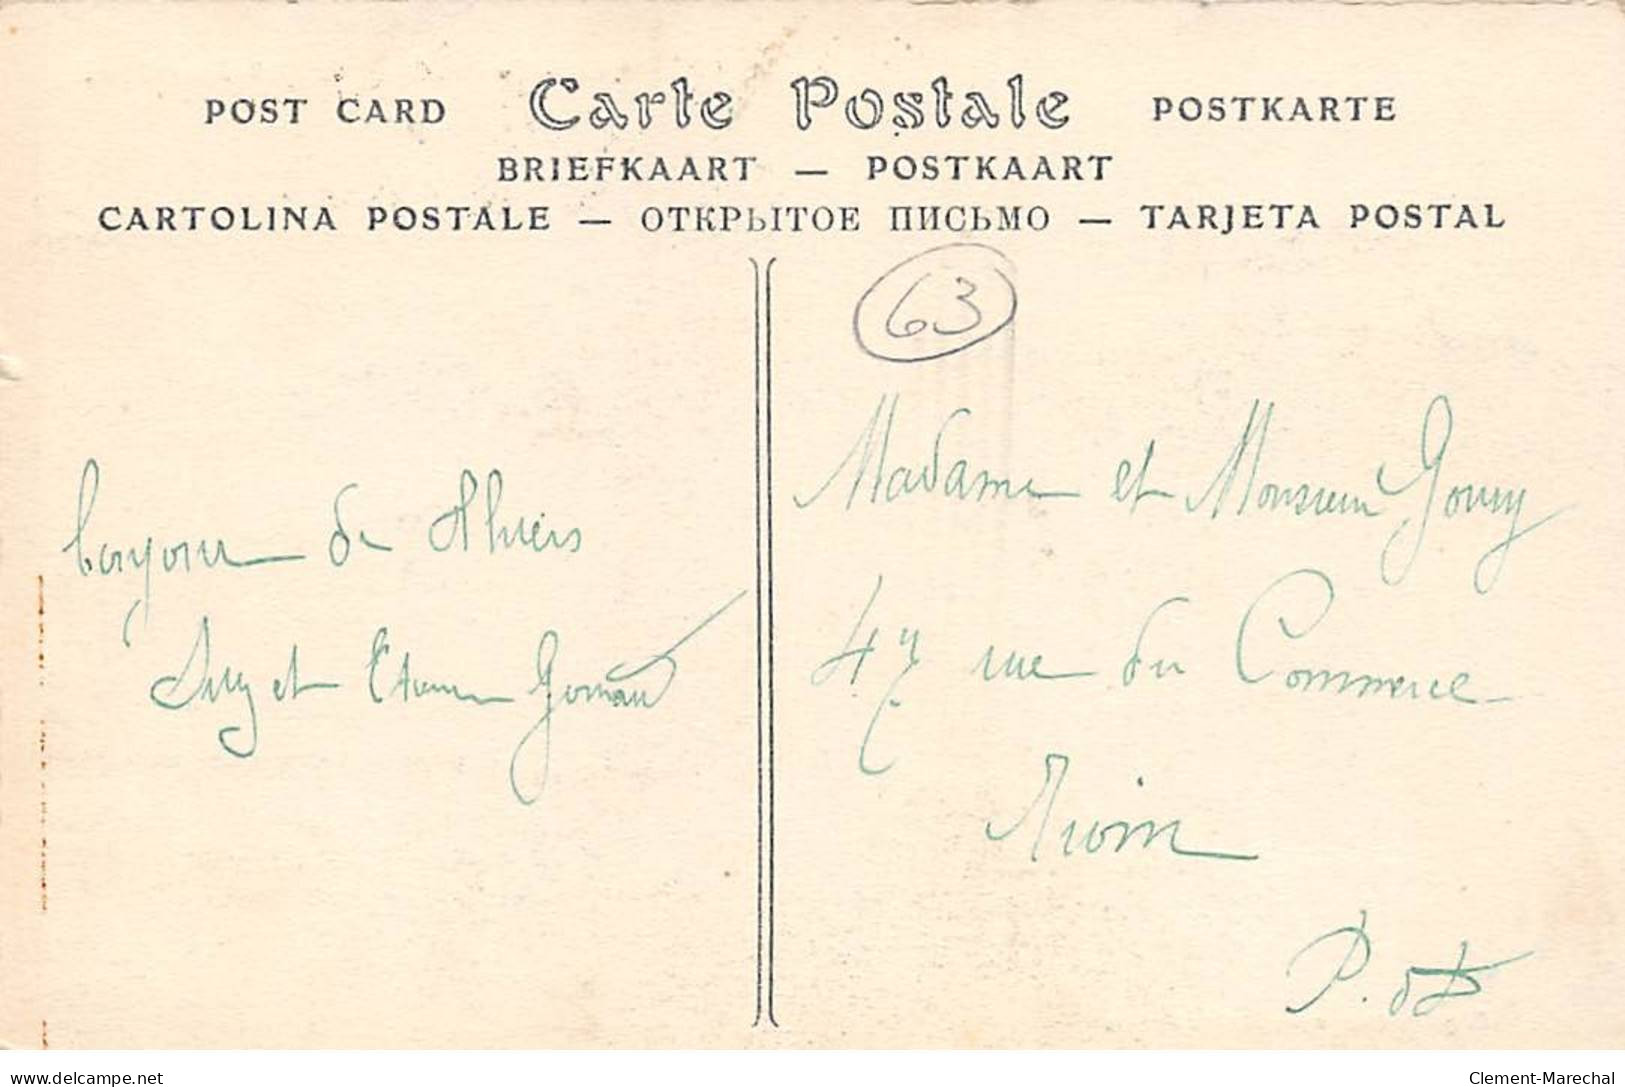 POST CARD Carte Postale POSTKARTE
BRIEFKAART — POSTKAART
CARTOLINA POSTALE — ОТКРЫТОЕ ПИСЬМО — TARJETA POSTAL
63
bonjour de Thiers
et Etienne
Madame et Monsieur Goury
47 rue du Commerce
Riom
P. de D
delcampe.net
Clement-Marechal